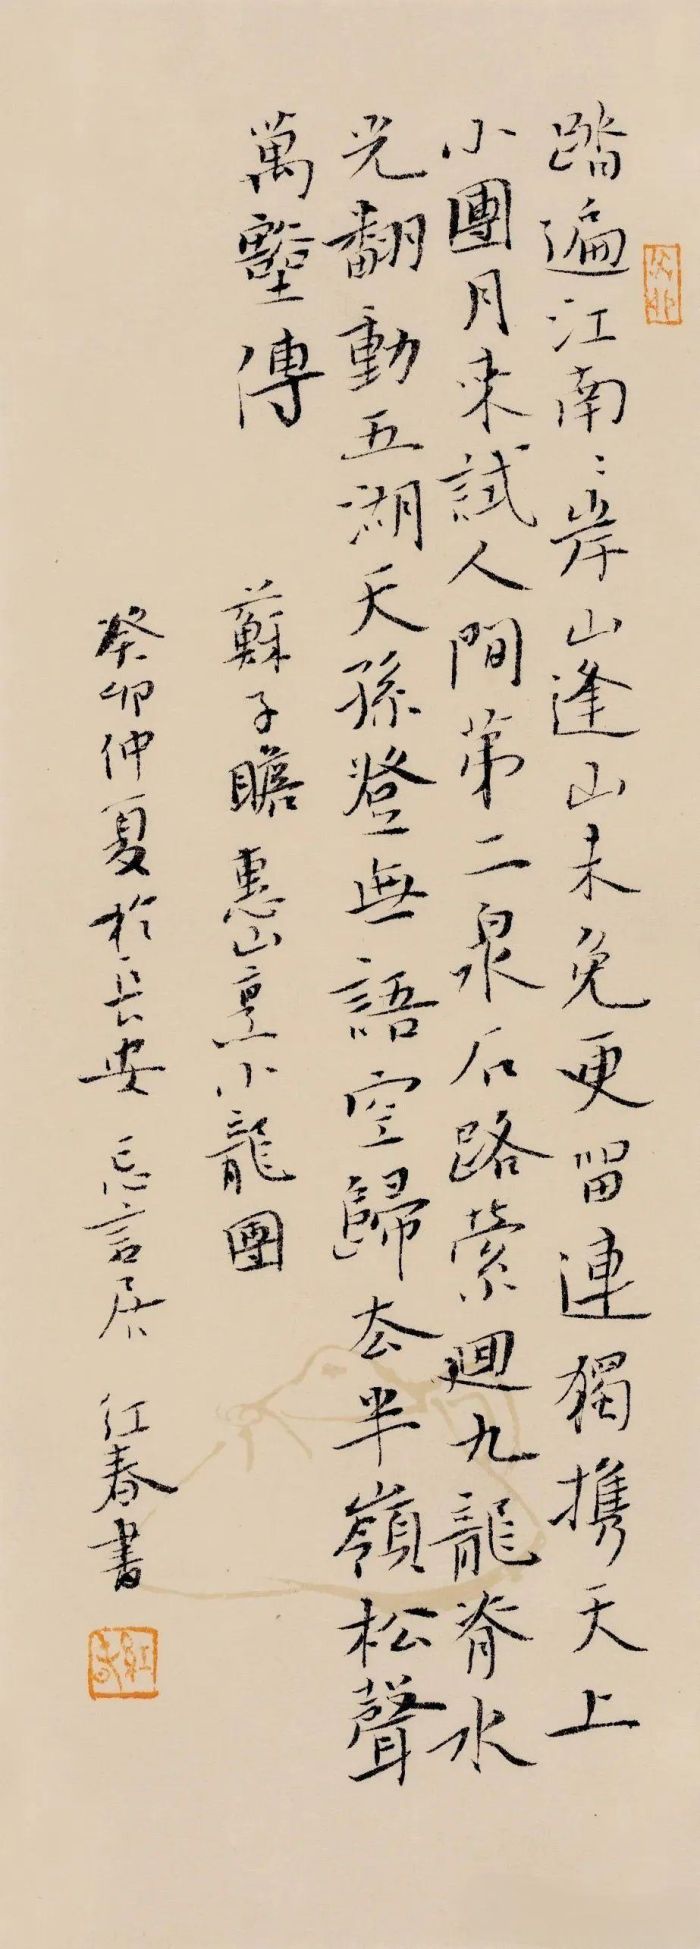 踏遍江南〻岸山逢山未免更留連獨携天上
小團月来試人間第二泉石路縈迴九龍脊水
光翻動五湖天孫登無語空歸去半嶺松聲
萬壑傳
蘇子瞻惠山烹小龍團
癸卯仲夏於長安忘言居 红春書